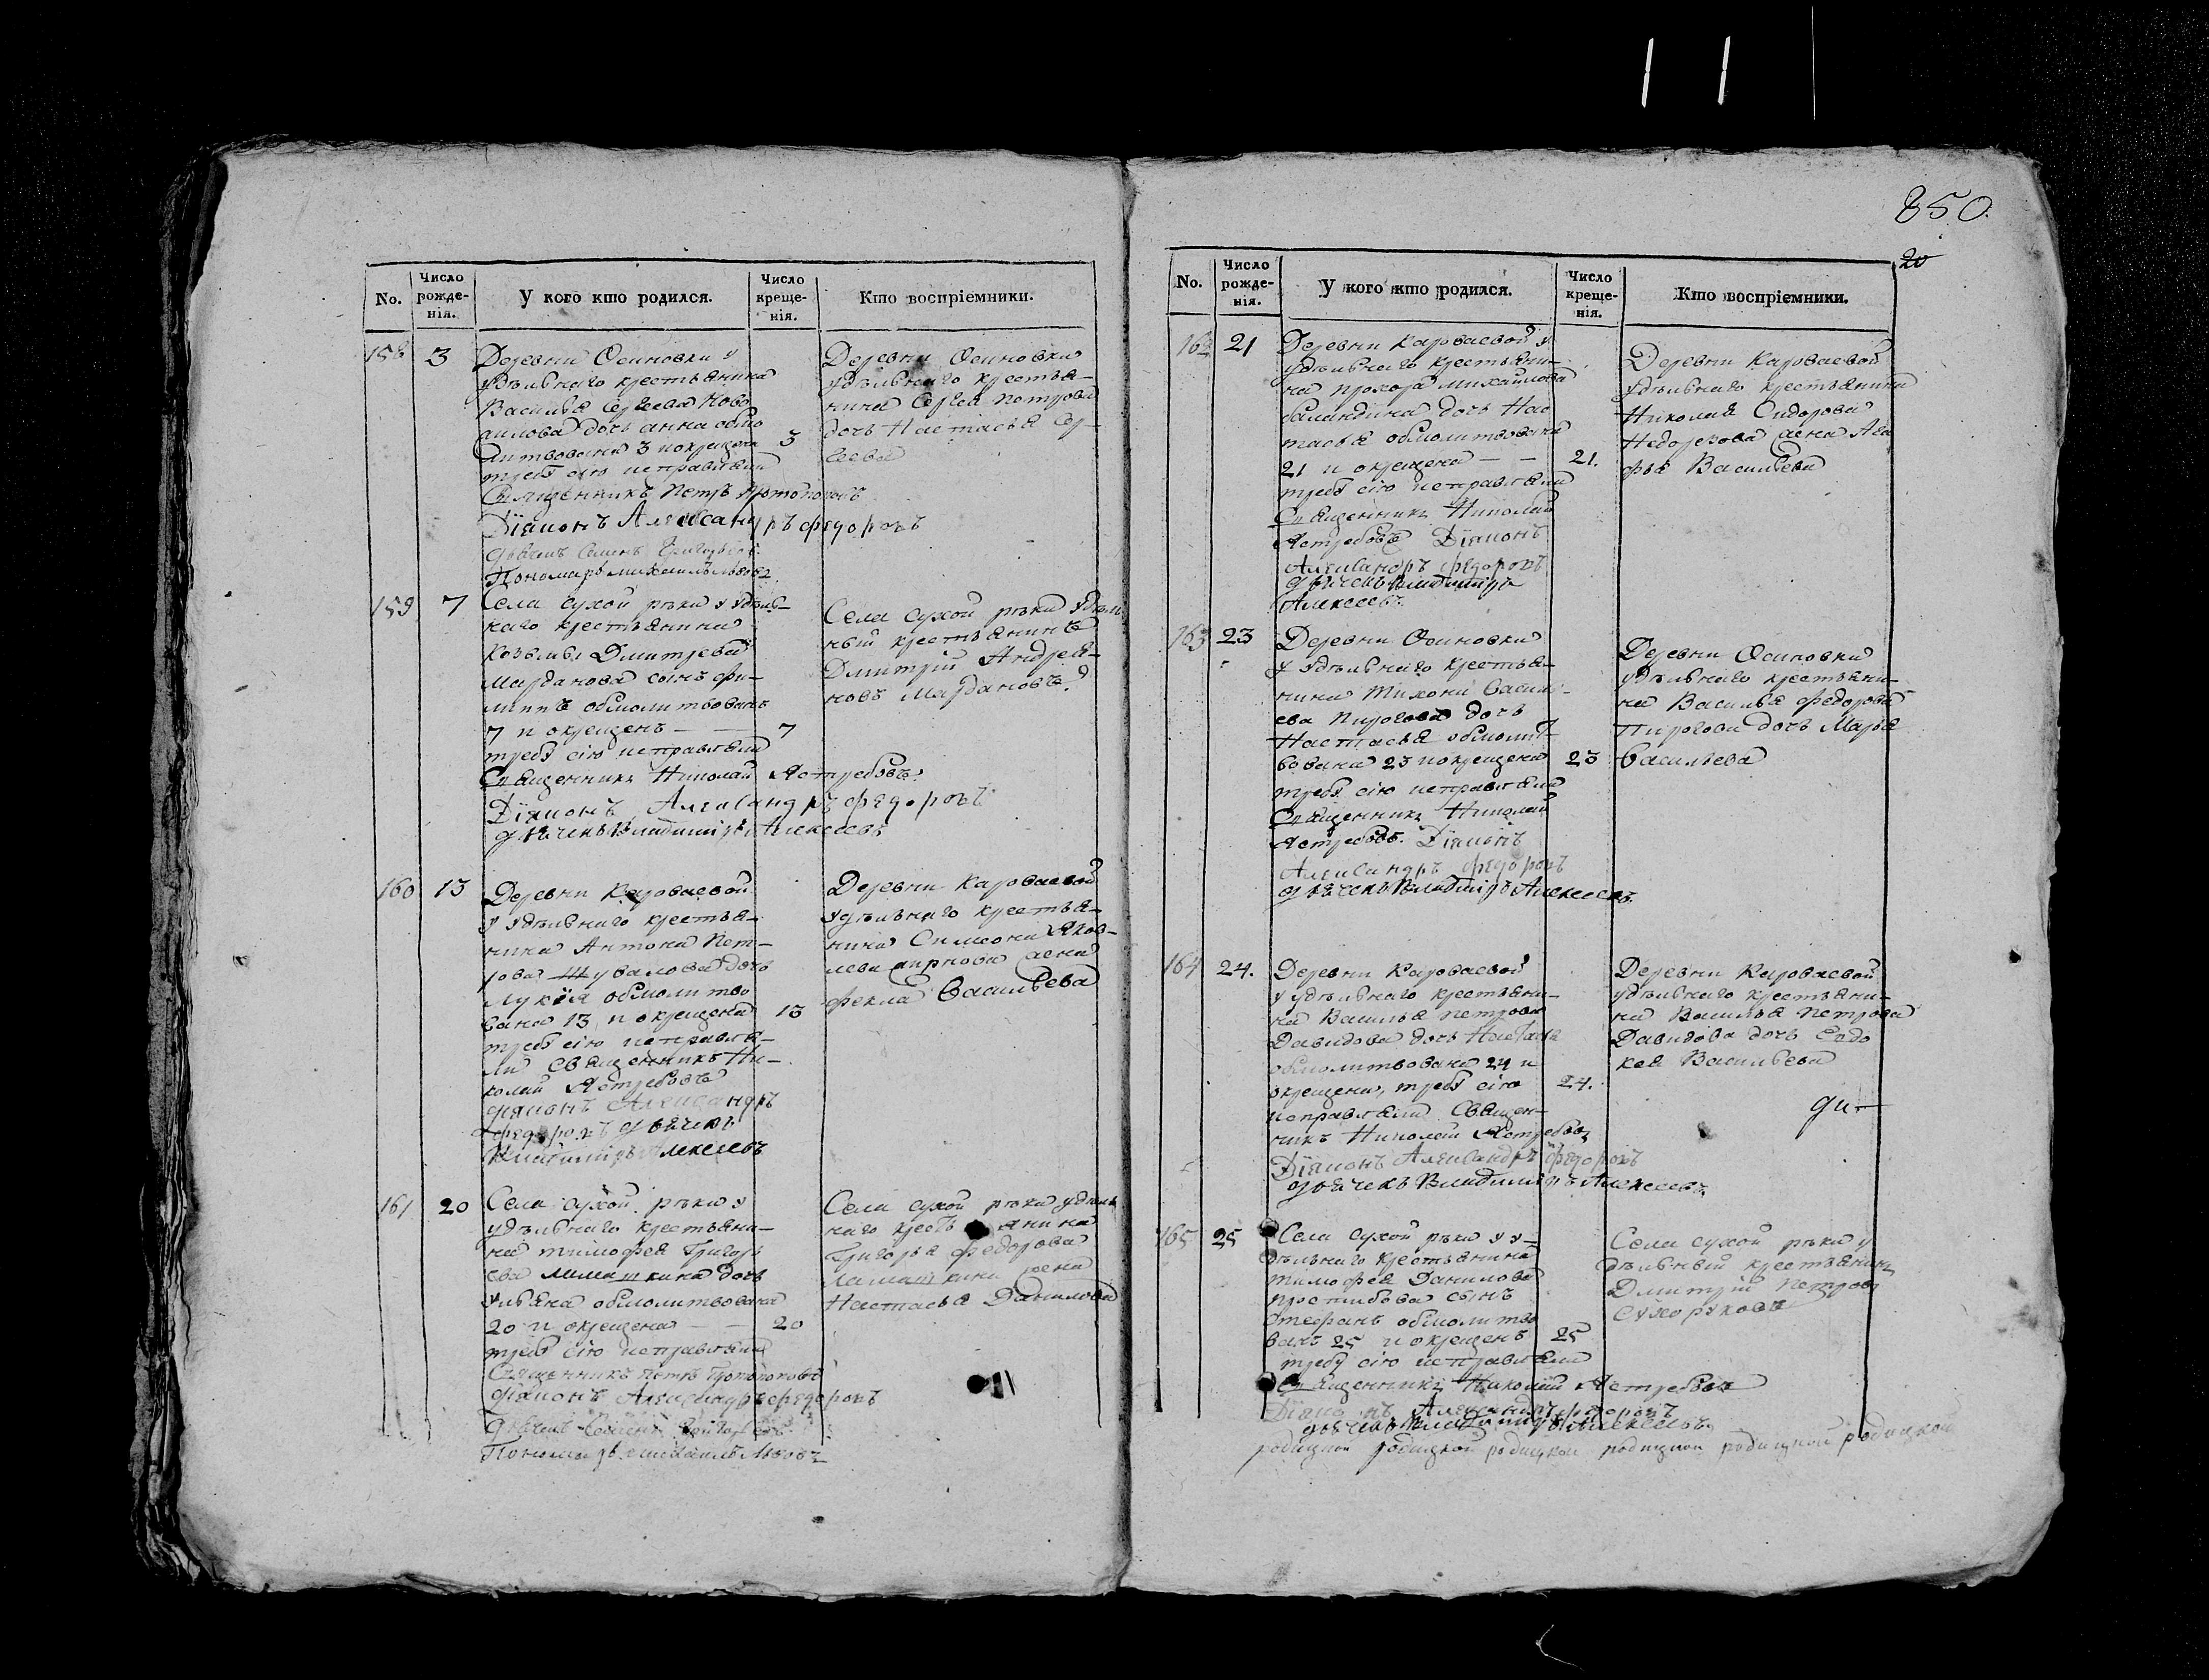 850.
20
No.
Число рожде-нія.
У кого кто родился.
Число креще-нія.
Кто воспріемники.
158 3
Деревни Осиновки у
удѣльнаго крестьянина
Василья Сергеева Ново
дочь анна обмо
литвована 3 и окрещена 3
требу сію исправляли
Священникъ Петръ Протопоповъ
Діаконъ Александръ Федоровъ
дьячекъ Семенъ Григорьевъ
Пономарь михаилъ львовъ
Деревни Осиновки
удѣльнаго крестья-
нина Сергея Петрова
дочь Настасья Сер-
геева
159 7
Села сухой рѣки у удѣль-
наго крестьянина
Козьмы Дмитрева
Марданова сынъ фи-
липпъ обмолитвованъ
7 и окрещенъ — 7
требу сію исправляли
Священникъ Николай Ястребовъ
Діаконъ Александръ федоровъ
дьячекъ Владимиръ Алексеевъ
Села сухой рѣки удѣль
ный крестьянинъ
Дмитрій Андрея-
новъ Мардановъ
160 13
Деревни Караваевой
у удѣльнаго крестья-
нина Антона Пет-
рова Шувалова дочь
Лукія обмолитво
вана 13 и окрещена 13
требу сію исправля-
ли Священникъ Ни-
колай Ястребовъ
діаконъ Александръ
федоровъ дьячекъ
Владимиръ Алексеевъ
Деревни Караваевой
удѣльнаго крестья-
нина Симеона Яков-
лева жена
фекла Васильева
161 20
Села сухой рѣки у
удѣльнаго крестьяни-
на тимофея Григорь
ева Лемашкина дочь
Ульяна обмолитвована
20 и окрещена — — 20
требу сію исправляли
Священникъ петръ Протопоповъ
діаконъ Александръ федоровъ
дьячекъ Семенъ Григорьевъ
Пономарь михаилъ Львовъ
Села сухой рѣки удѣль
наго крестьянина
Григорья федорова
Лемашкина жена
Настасья Данилова
No.
Число рожде-нія.
У кого кто родился.
Число креще-нія.
Кто воспріемники.
162 21
Деревни Караваевой у
удѣльнаго крестьяни-
на прохора михайлова
баландина дочь Нас
тасья обмолитвована
21 и окрещена — — 21.
требу сію исправляли
Священникъ Николай
Ястребовъ Діаконъ
Александръ федоровъ
дьячекъ Владимиръ
Алексеевъ.
Деревни Караваевой
удѣльнаго крестьянина
Николая Сидорова
Недорезова жена Ага
фья Васильева
163 23
Деревни Осиновки
у удѣльнаго крестья-
нина Тихона Василь-
ева Пирогова дочь
Настасья обмолит-
вована 23 и окрещена 23
требу сію исправляли
Священникъ Николай
Ястребовъ. Діаконъ
Александръ федоровъ
дьячекъ Владимиръ Алексеевъ.
Деревни Осиновки
удѣльнаго крестьяни-
на Василья Федорова
Пирогова дочь Марья
Васильева
164 24.
Деревни Караваевой
у удѣльнаго крестьяни-
на Василья петрова
Давидова дочь Настасья
обмолитвована 24 и
окрещена, требу сію 24.
исправляли Священ-
никъ Николай Ястребовъ
Діаконъ Александръ федоровъ
дьячекъ Владимиръ Алексеевъ.
Деревни Караваевой
удѣльнаго крестьяни-
на Василья петрова
Давидова дочь Евдо
кея Васильева
165 25
Села Сухой рѣки у у-
дѣльнаго крестьянина
тимофея Данилова
сынъ
Стефанъ обмолитво
ванъ 25 и окрещенъ 25
требу сію исправляли
Священникъ Николай Ястребовъ
Діаконъ Александръ федоровъ
дьячекъ Владимиръ Алексеевъ.
Села сухой рѣки у
дѣльный крестьянинъ
Дмитрій Петровъ
Сухоруковъ